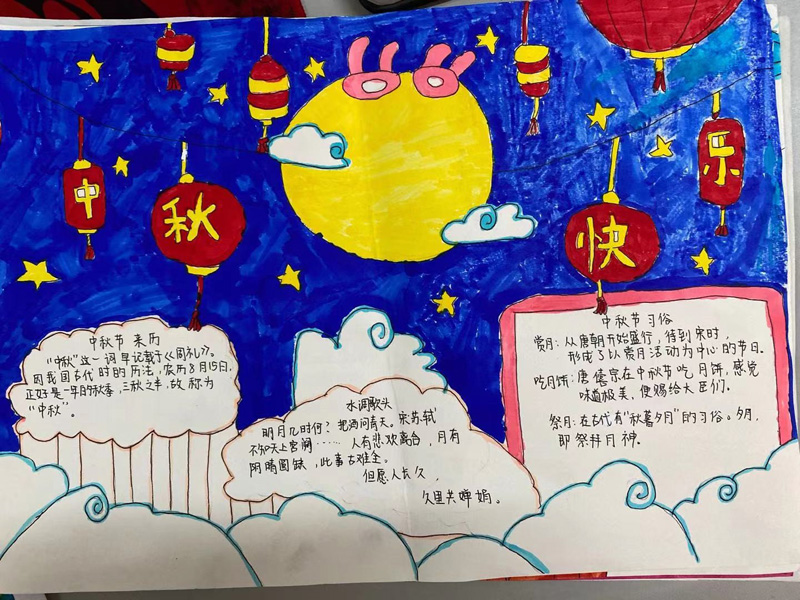 中
秋
快
乐
中秋节 来历
"中秋"这一词早记载于《周礼》。
因我国古代时的历法,农历8月15日,
正好是一年的秋季,三秋之半,故称为
"中秋"。
水调歌头
宋苏轼
明月几时何?把酒问青天。
不知天上宫阙……人有悲欢离合,月有
阴晴圆缺,此事古难全。
但愿人长久,
久里共婵娟。
中秋节习俗
赏月:从唐朝开始盛行,待到宋时,
形成了以赏月活动为中心的节日。
吃月饼:唐僖宗在中秋节吃月饼,感觉
味道极美,便赐给大臣们。
祭月:在古代有"秋暮夕月"的习俗。夕月,
即祭拜月神。